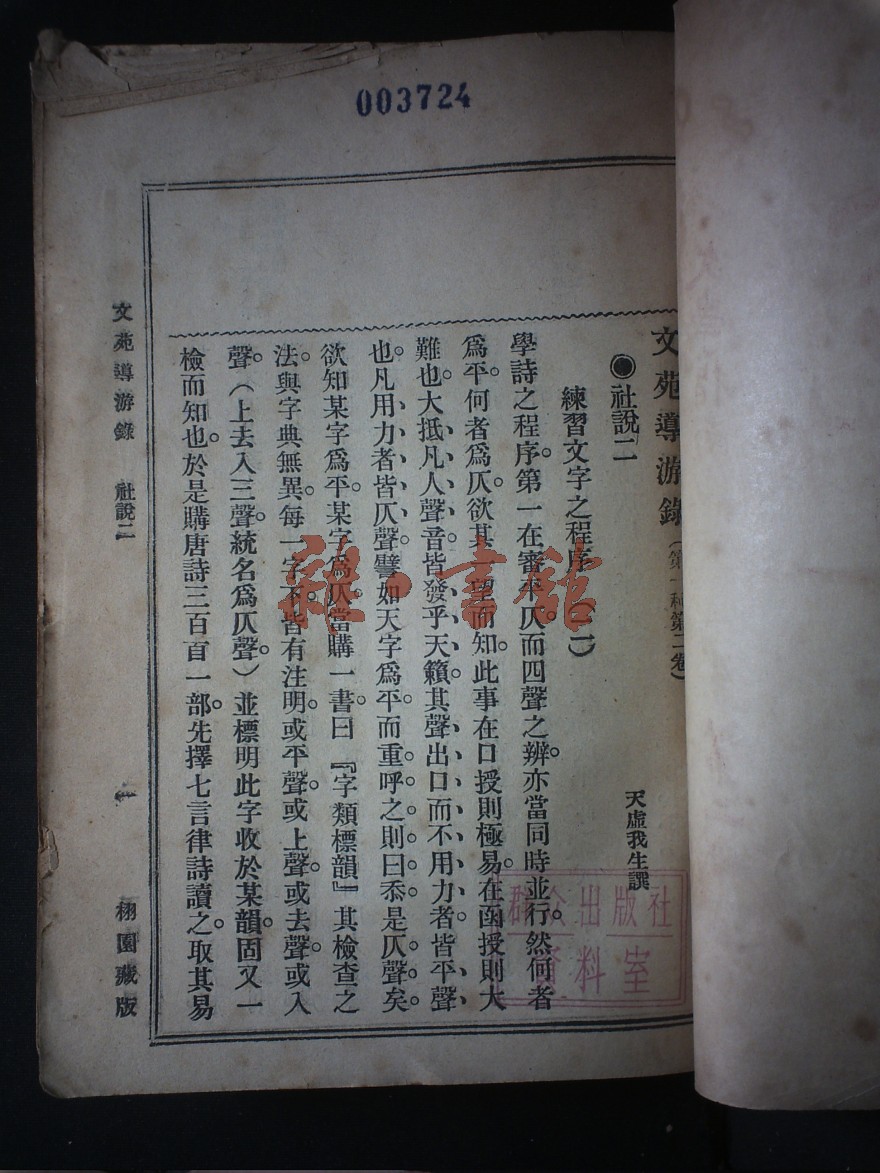 003724
文苑導游錄(第一種第二卷)
●社說二
天虛我生譔
練習文字之程序(二)
學詩之程序。第一在審平仄。而四聲之辨。亦當同時並行。然何者
爲平。何者爲仄。欲其一望而知。此事在口授則極易。在函授則大
難也。大抵凡人聲音。皆發乎天籟。其聲出口而不用力者皆平聲
也。凡用力者皆仄聲。譬如天字爲平。而重呼之。則曰忝。是仄聲矣。
欲知某字爲平。某字爲仄。當購一書。曰『字類標韻』其檢查之
法。與字典無異。每一字下。皆有注明。或平聲。或上聲。或去聲。或入
聲。(上去入三聲。統名爲仄聲。)並標明此字收於某韻。固又一
檢而知也。於是購唐詩三百首一部。先擇七言律詩讀之。取其易
文苑導游錄 社說二 一 栩園藏版
群众出版社
資料室
雜·書館